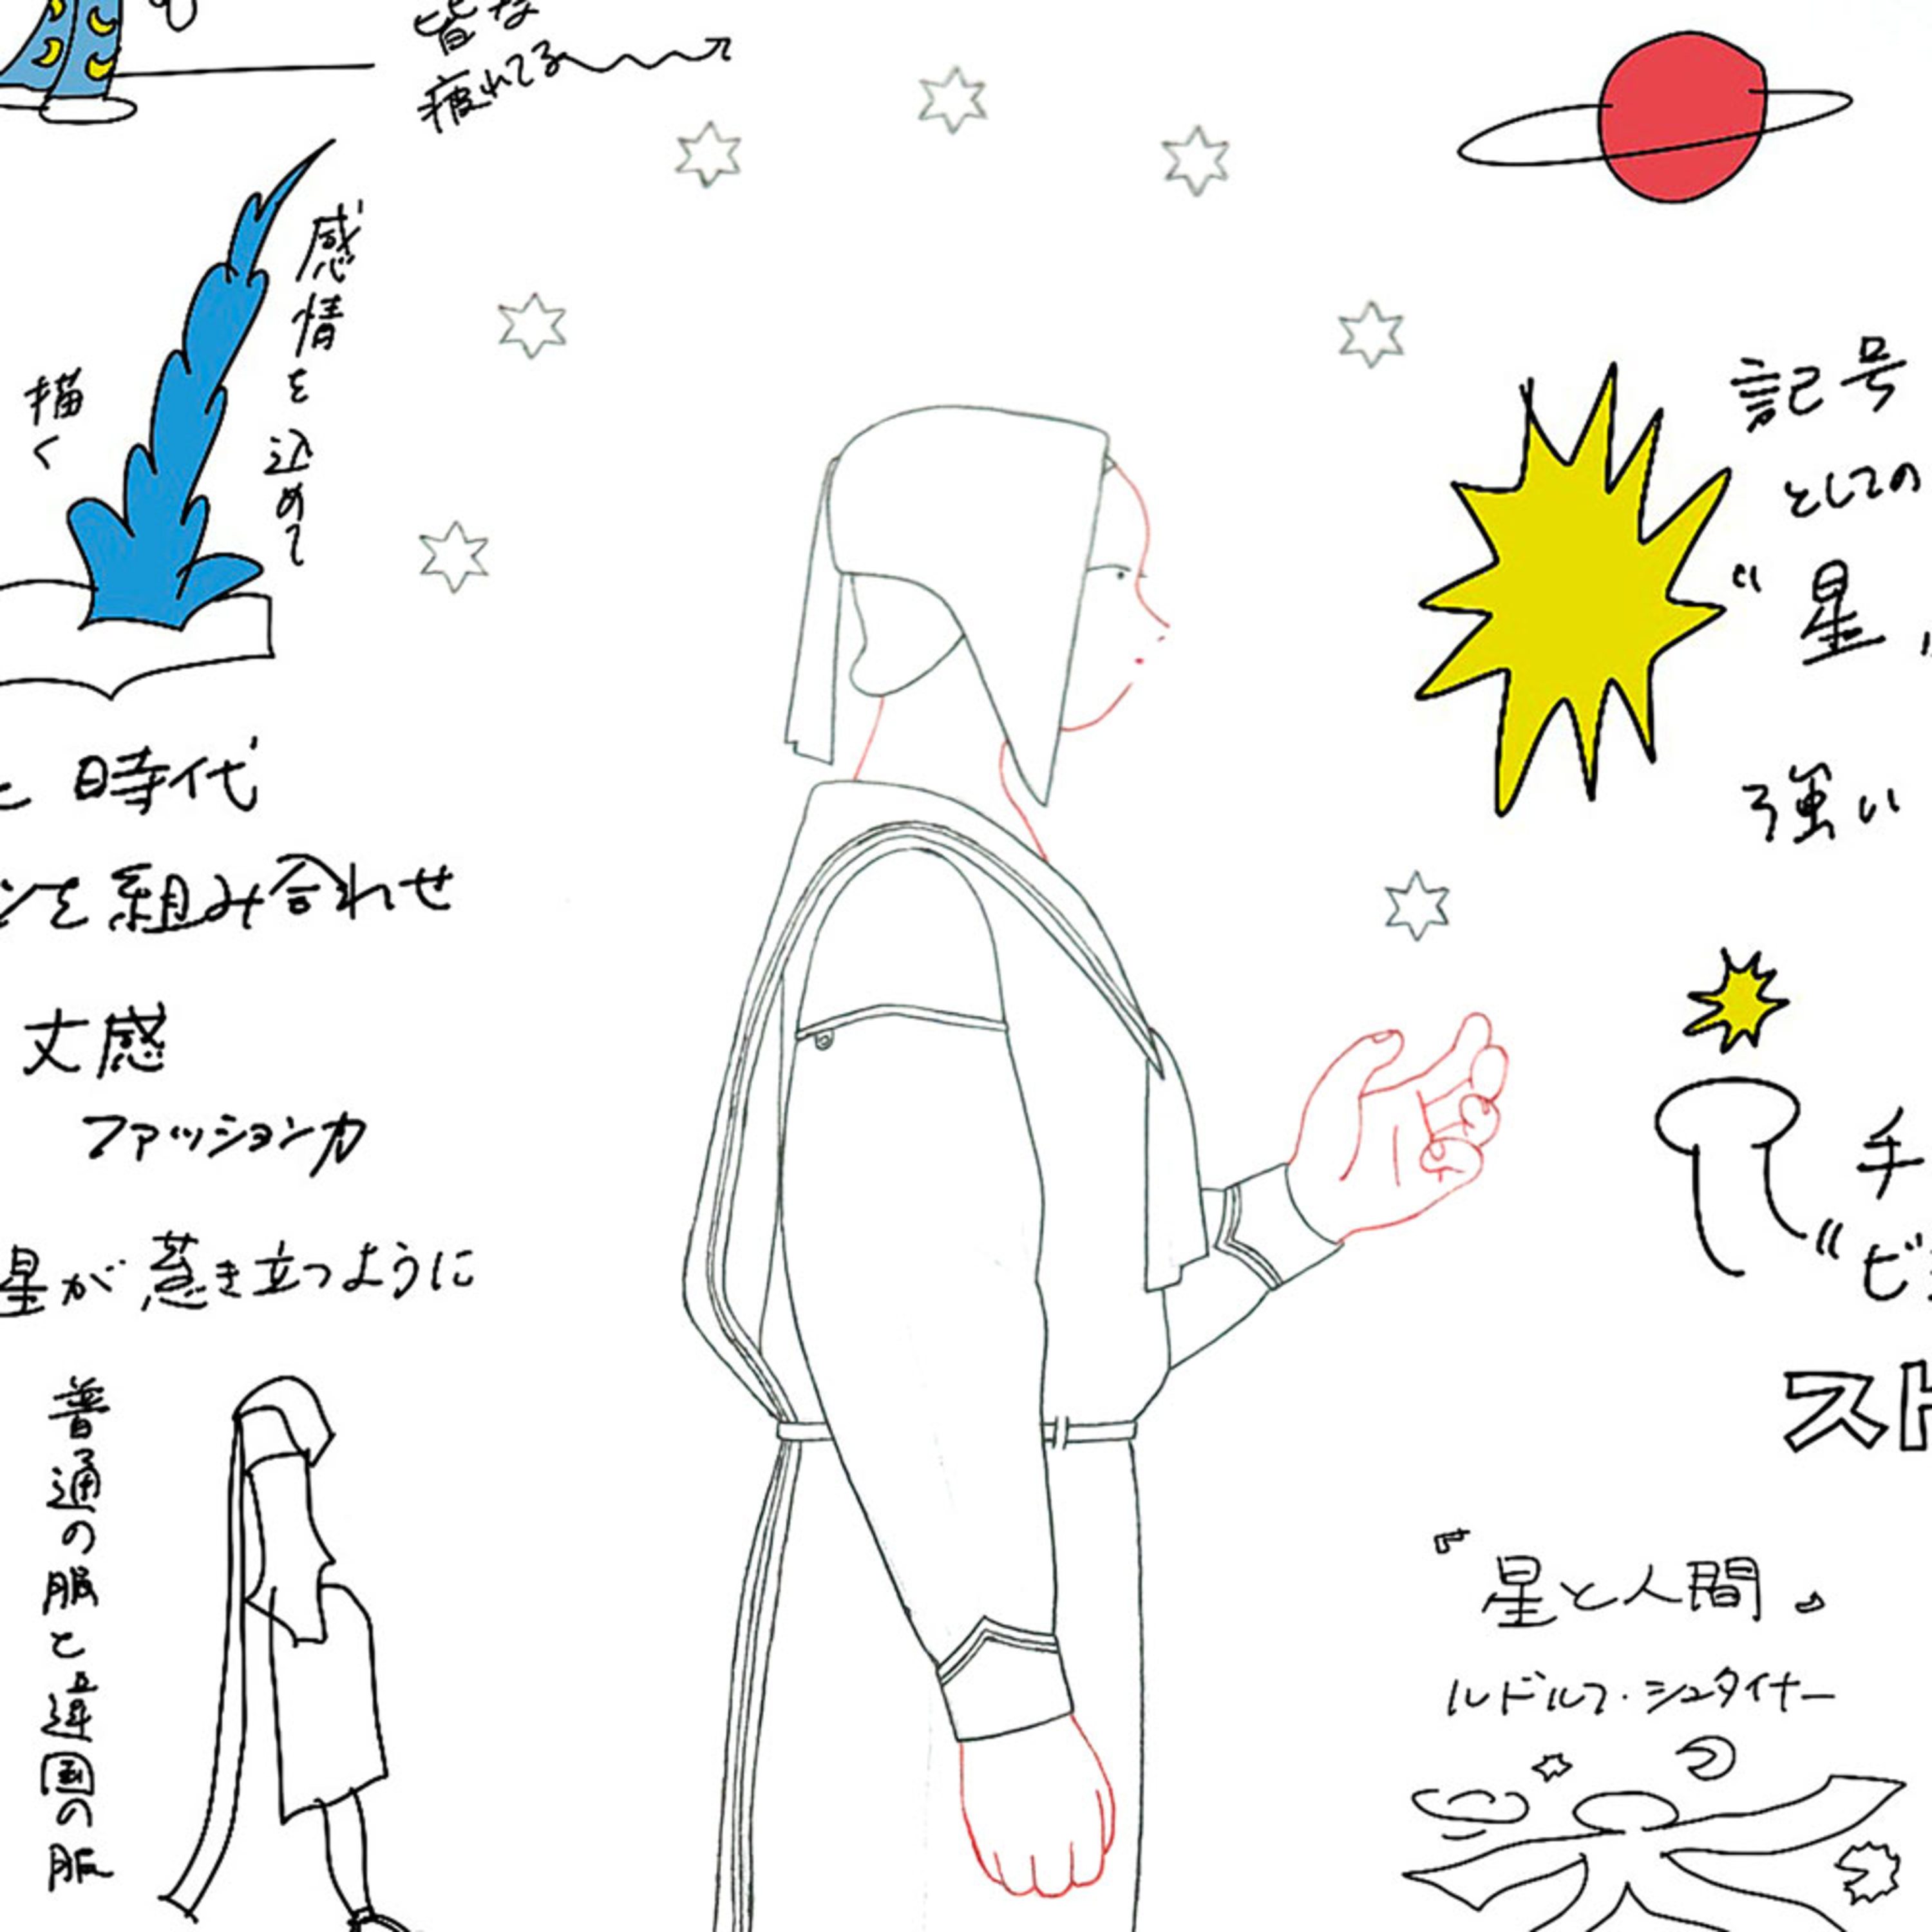 皆な
疲れてる
感情を込めて
描く
時代
を組み合わせ
丈感
ファッション力
星が惹き立つように
普通の服と違国の服
記号
としての
“星”
強い
『星と人間』
ルドルフ・シュタイナー